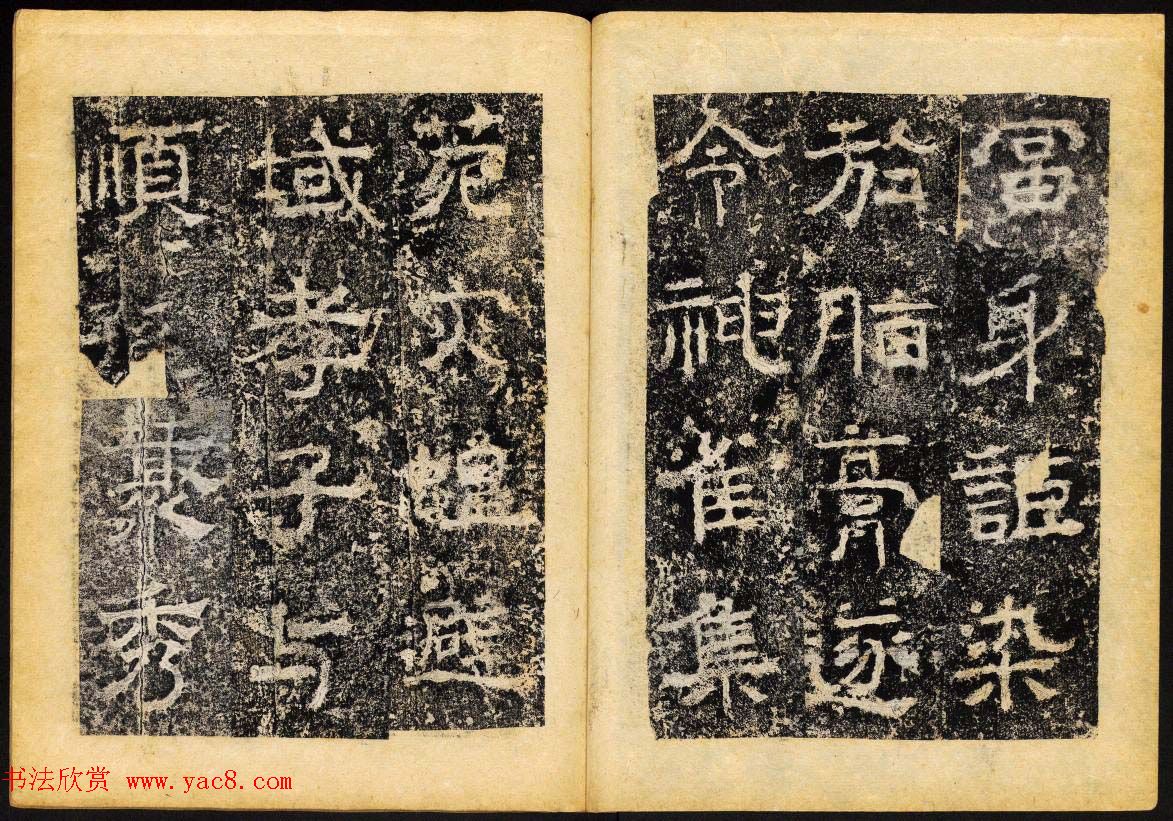 冨身詎染
於脂膏遂
令神雀集
苑文蝗避
域孝子与
順兼秀
书法欣赏 www.yac8.com